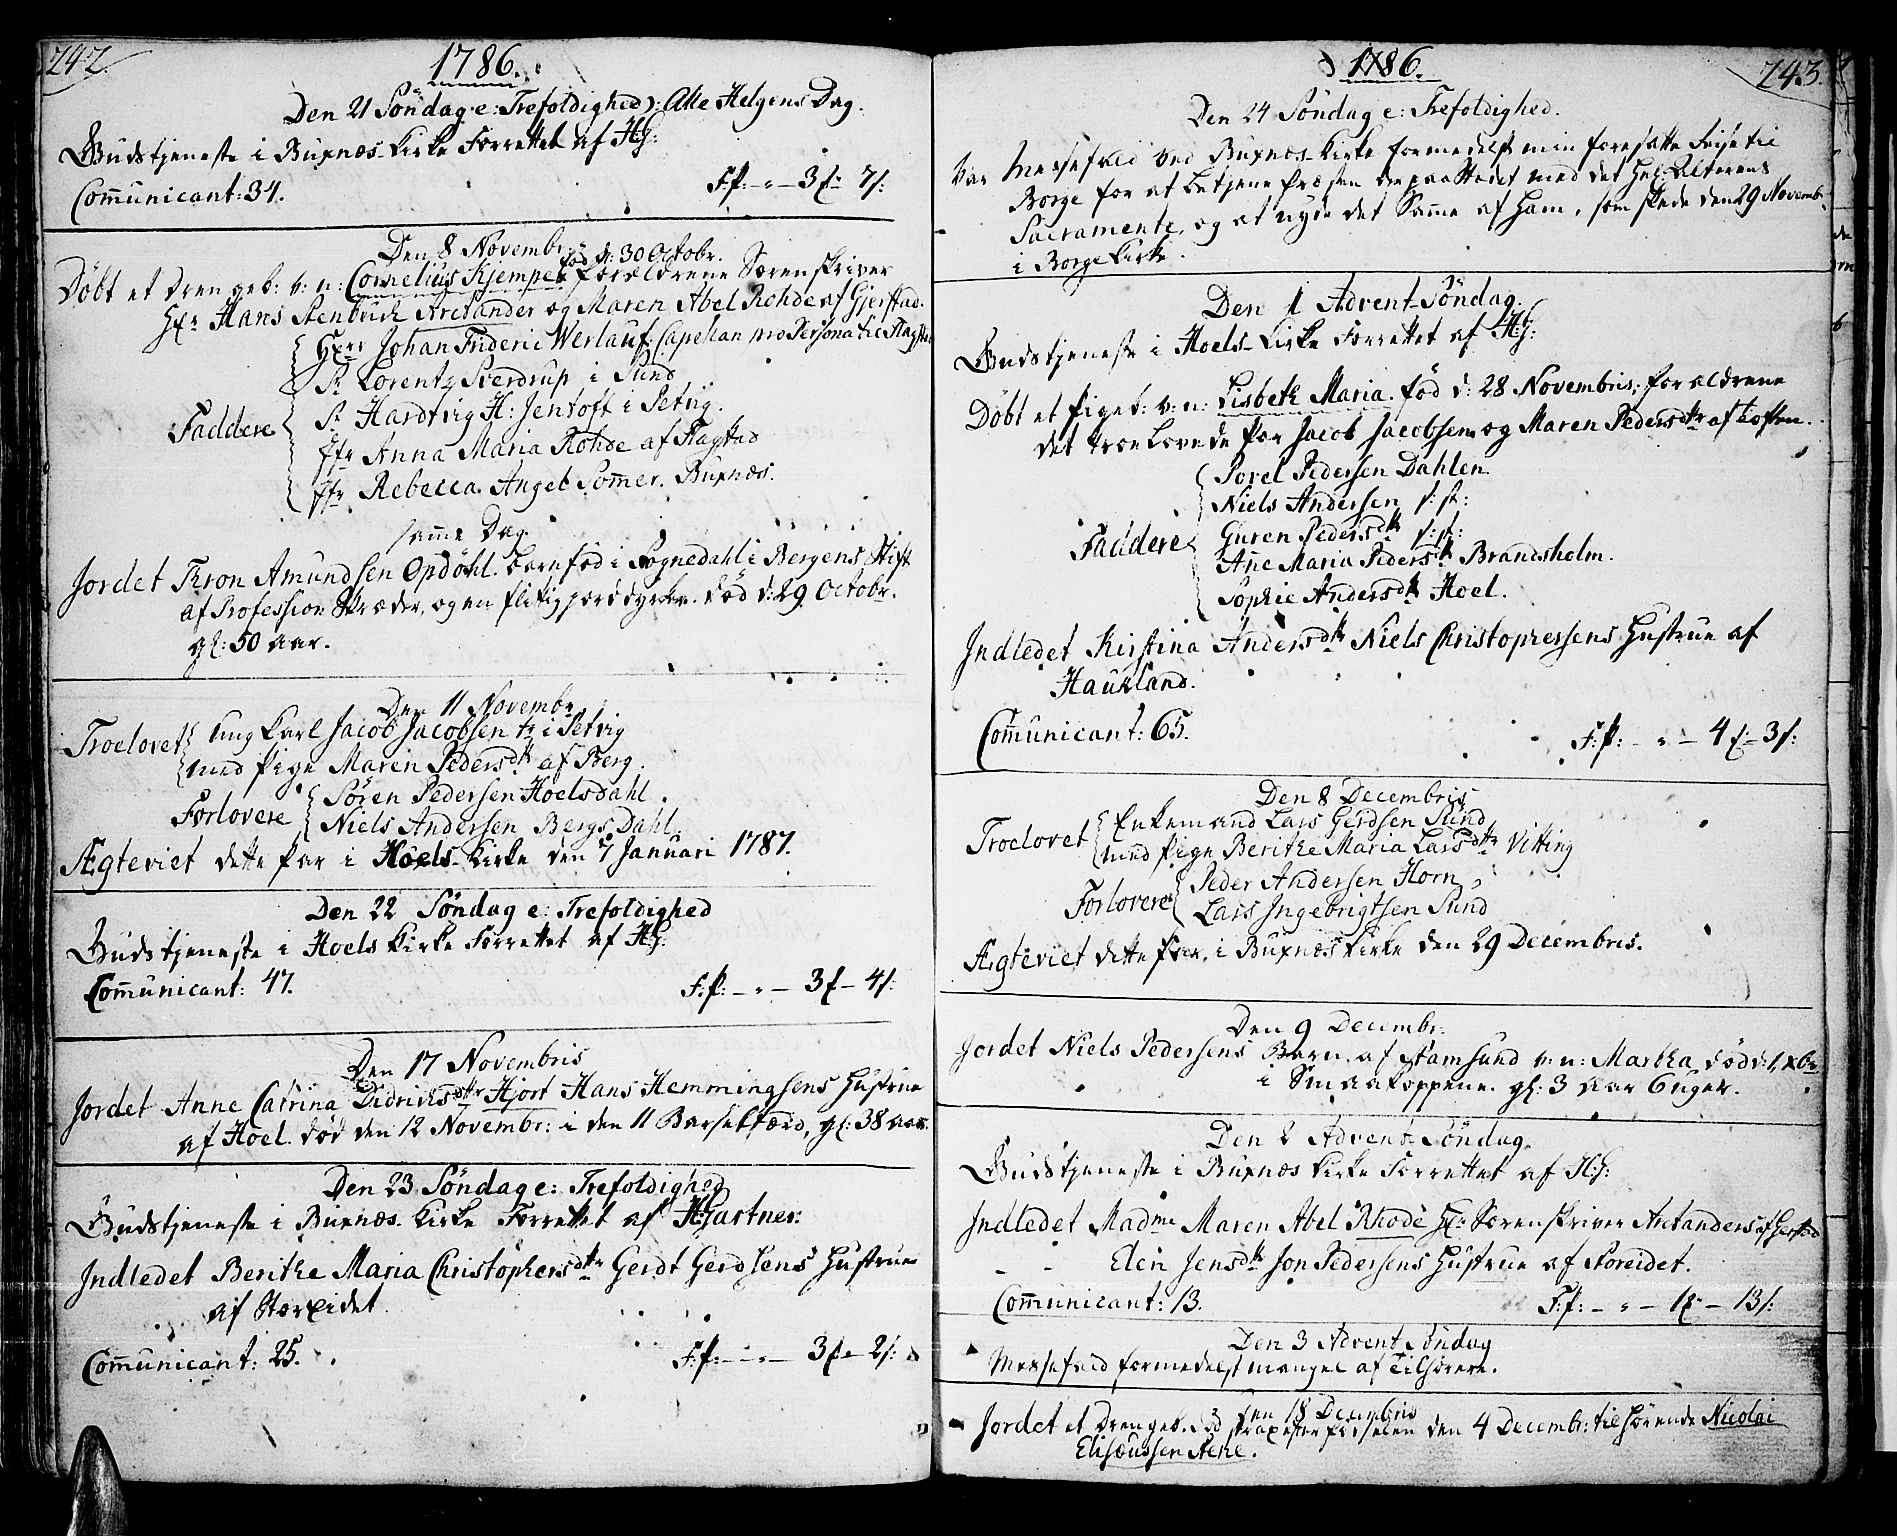 242.
1786.
Den 21 Söndag e: Trefoldighed: Alle Helgens Dag.
Gudstjeneste i Buxnæs Kirke Forrettet af HG:
Com̄unicant: 34.
F:f: – " – 3 f: 7 s:
Den 8 Novembr:
föd d: 30 Octobr.
Döbt et Drengeb: v: n: Cornelius Kjempe forældrene Sorenskriver
Hr. Hans Steenbuch Arctander og Maren Abel Rohde af Gjerstad.
Herr Johan Frideric Werlauf Capellan pro Persona til
Sr. Lorentz Sverdrup i Sund
Sr. Hardtvig H: Jentoft i Petvig.
Faddere
Jfr Anna Maria Rohde af Hagstad
Jfr Rebecca Angel Som̄er. Buxnæs.
sam̄e Dag.
Jordet Thron Amundsen Opdöhl. barnföd i Sognedahl i Bergens Stift
af Profession Skræder, og en flitig jorddyrker. död d: 29 Octobr.
gl: 50 aar.
Den 11 Novembr
Troelovet ung karl Jacob Jacobsen i Petvig
med Pige Maren Pedersdtr af Berg.
Forlovere Sören Pedersen Hoelsdahl.
Niels Andersen Bergs Dahl.
Ægteviet dette Par i Hoels Kirke den 7 Januari 1787.
Den 22 Söndag e: Trefoldighed
Gudstjeneste i Hoels Kirke Forrettet af HG:
Com̄unicant: 47.
F:f: – " – 3 f – 4 s:
Den 17 Novembris
Jordet Anne Catrina Didrichsdtr Hjort Hans Hemmingsens Hustrue
af Hoel. död den 12 Novembr: i den 11 Barselfærd, gl: 38 aar.
Den 23 Söndag e: Trefoldighed
Gudstjeneste i Buxnæs Kirke Forrettet af HGartner:
Indledet Berithe Maria Christophersdtr Gerdt Gerdsens Hustrue
af Storeidet.
Com̄unicant: 25.
F:f: – " – 3 f – 2 s:
1786.
243.
Den 24 Söndag e: Trefoldighed.
Var Messefald ved Buxnæs Kirke formedelst min foresatte Reise til
Borge for at betjene Præsten der paa Stedet med det Hel: Alterens
Sacramente, og at nyde det Sam̄e af Ham, som skede den 29 Novembr.
i Borge Kirke.
Den 1 Advent Söndag.
Gudstjeneste i Hoels Kirke Forrettet af HG:
Döbt et Pigeb: v: n: Lisbeth Maria. föd d: 28 Novembris, forældrene
det troelovede Par Jacob Jacobsen og Maren Pedersdtr af
Povel Pedersen Dahlen
Niels Andersen s: st:
Faddere Guren Pedersdtr s: st:
Ane Maria Pedersdtr Brandsholm.
Sophie Andersdtr Hoel.
Indledet Kirstina Andersdtr Niels Christophersens Hustrue af
Haukland.
Com̄unicant: 65.
F:f: – " – 4 f: – 3 s:
Den 8 Decembris
Troelovet Enkemand Lars Gerdsen Sund
med Pige Berithe Maria Larsdtr Vitting
Forlovere Peder Andersen Horn
Lars Ingebrigtsen Sund
Ægteviet dette Par i Buxnæs Kirke den 29 Decembris.
Den 9 Decembr:
Jordet Niels Pedersens Barn af Stamsund v: n: Martha död d: 1 Xbr
i Smaakoppene. gl: 3 aar 6 uger.
Den 2 Advent Söndag
Gudstjeneste i Buxnæs Kirke Forrettet af HG:
Indledet Madme Maren Abel Rhode Hr: Sorenskriver Arctanders af Gerstad
– – Elen Jensdtr Jon Pedersens Hustrue af Storeidet.
Com̄unicant: 13.
F:f: – " – 1 f – 13 s:
Den 3 Advent Söndag
Messefald formedelst mangel af Tilhörere.
Den 18 Decembris
Jordet et Drengeb. död strax efter födselen den 4 Decembr: tilhörende Nicolai
Elisæussen